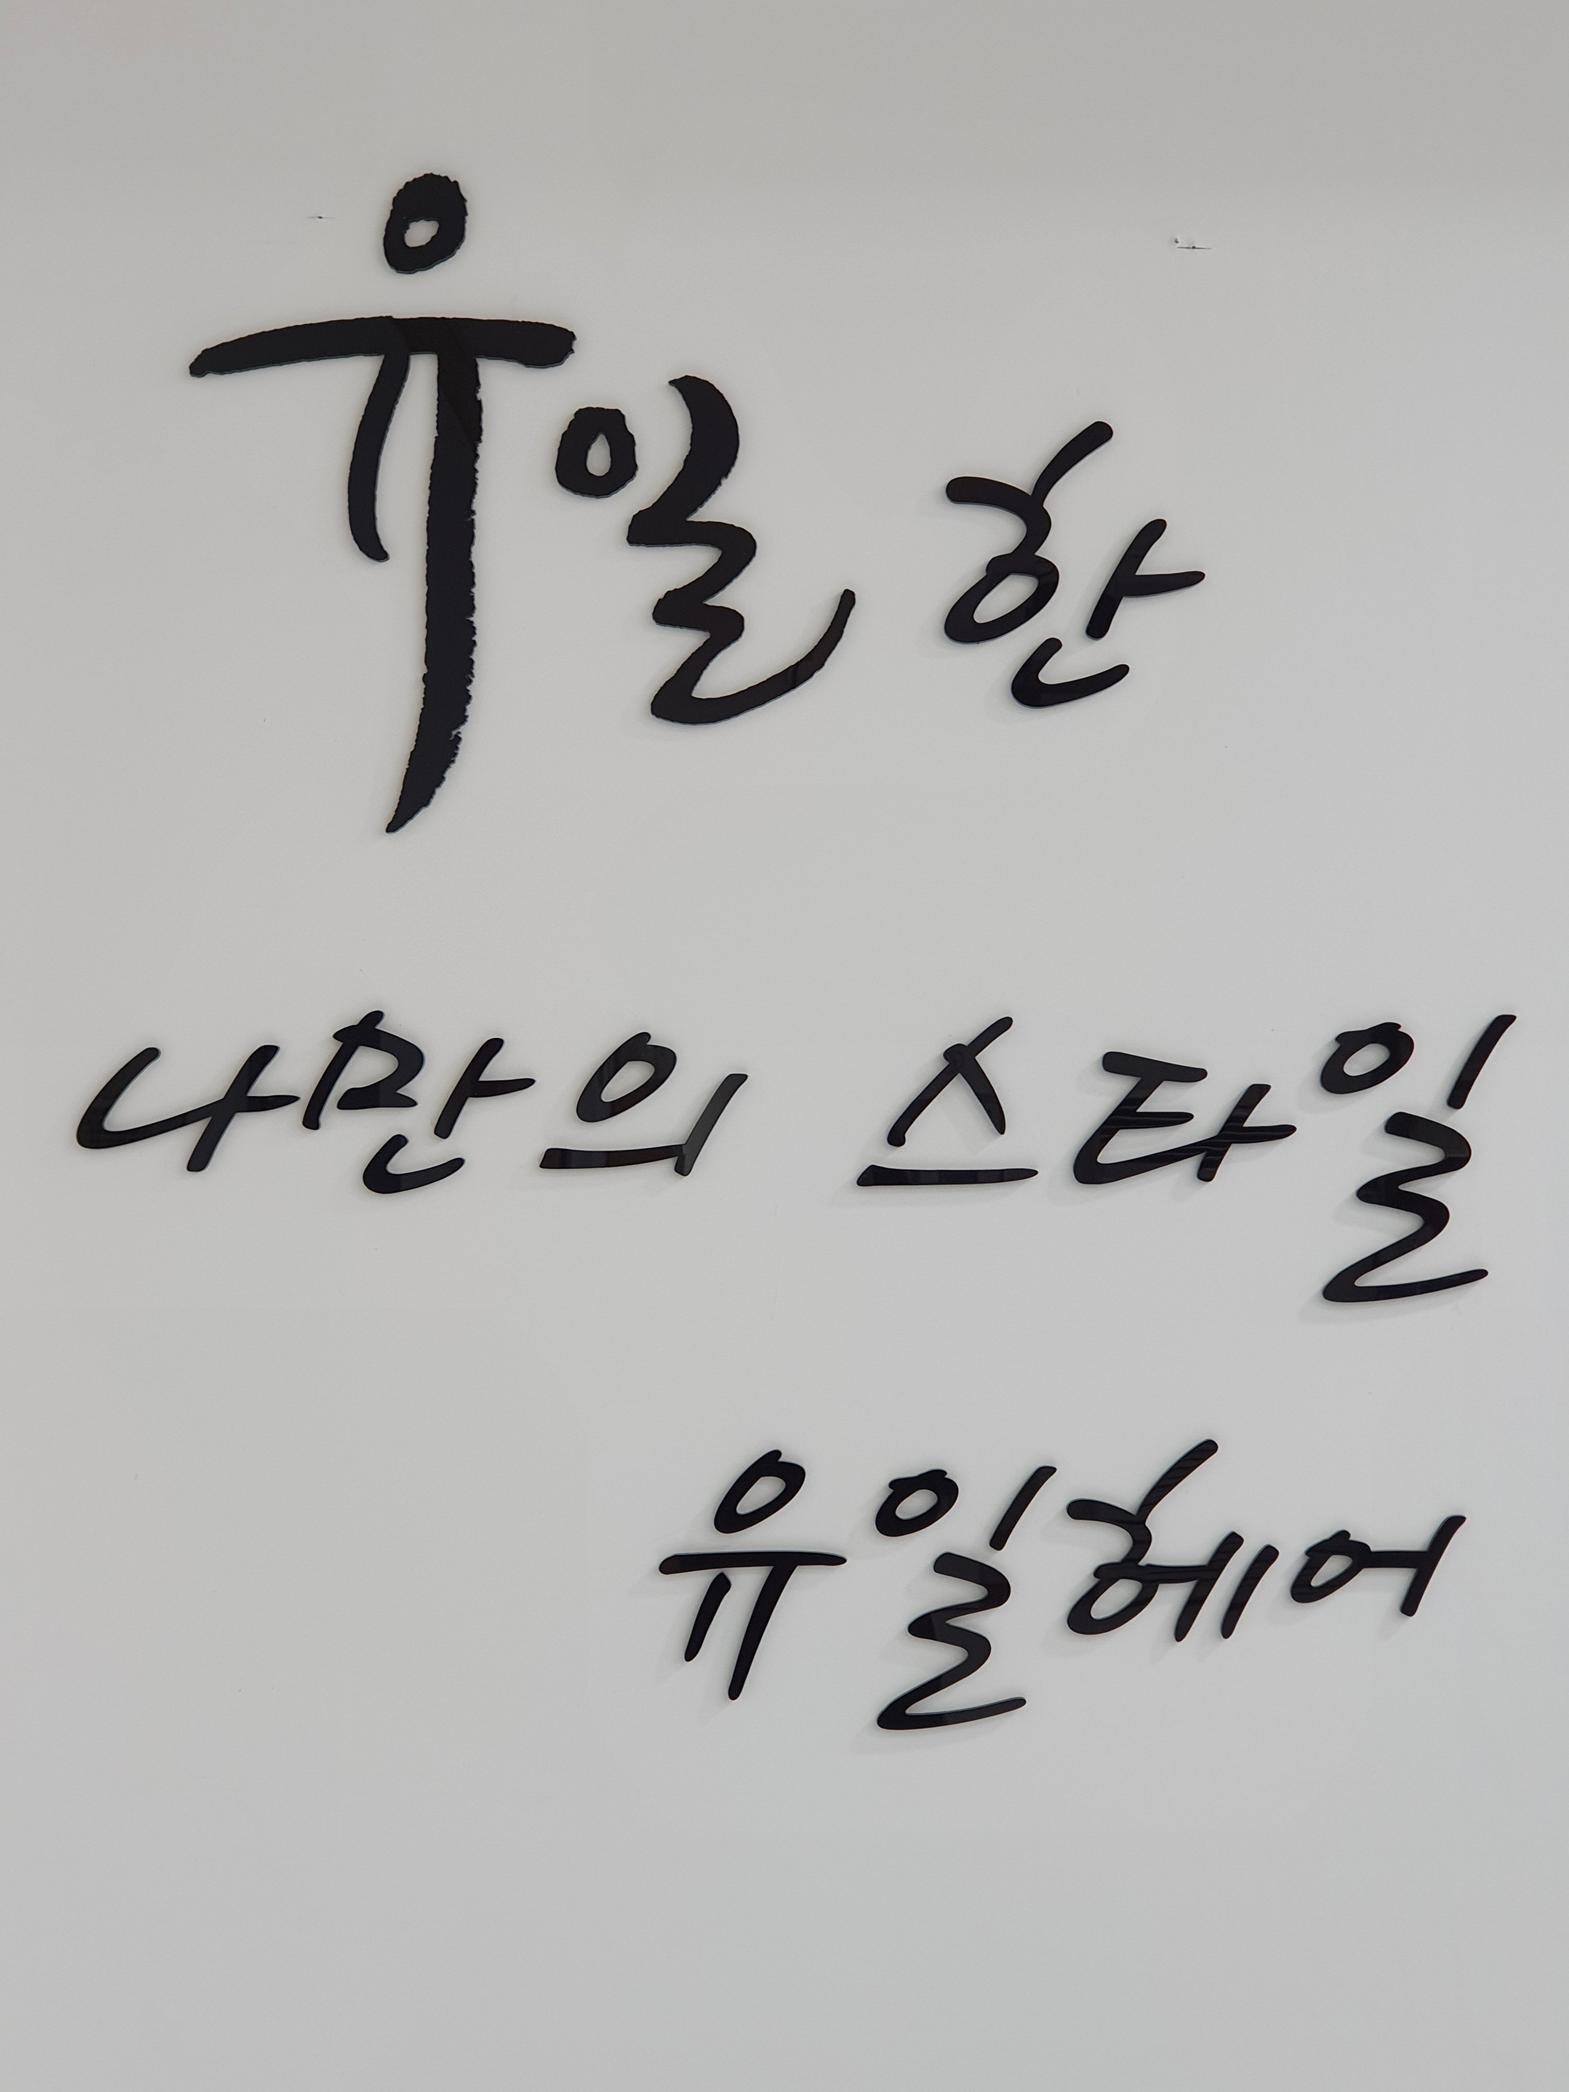 유일한
나만의 스타일
유일헤어